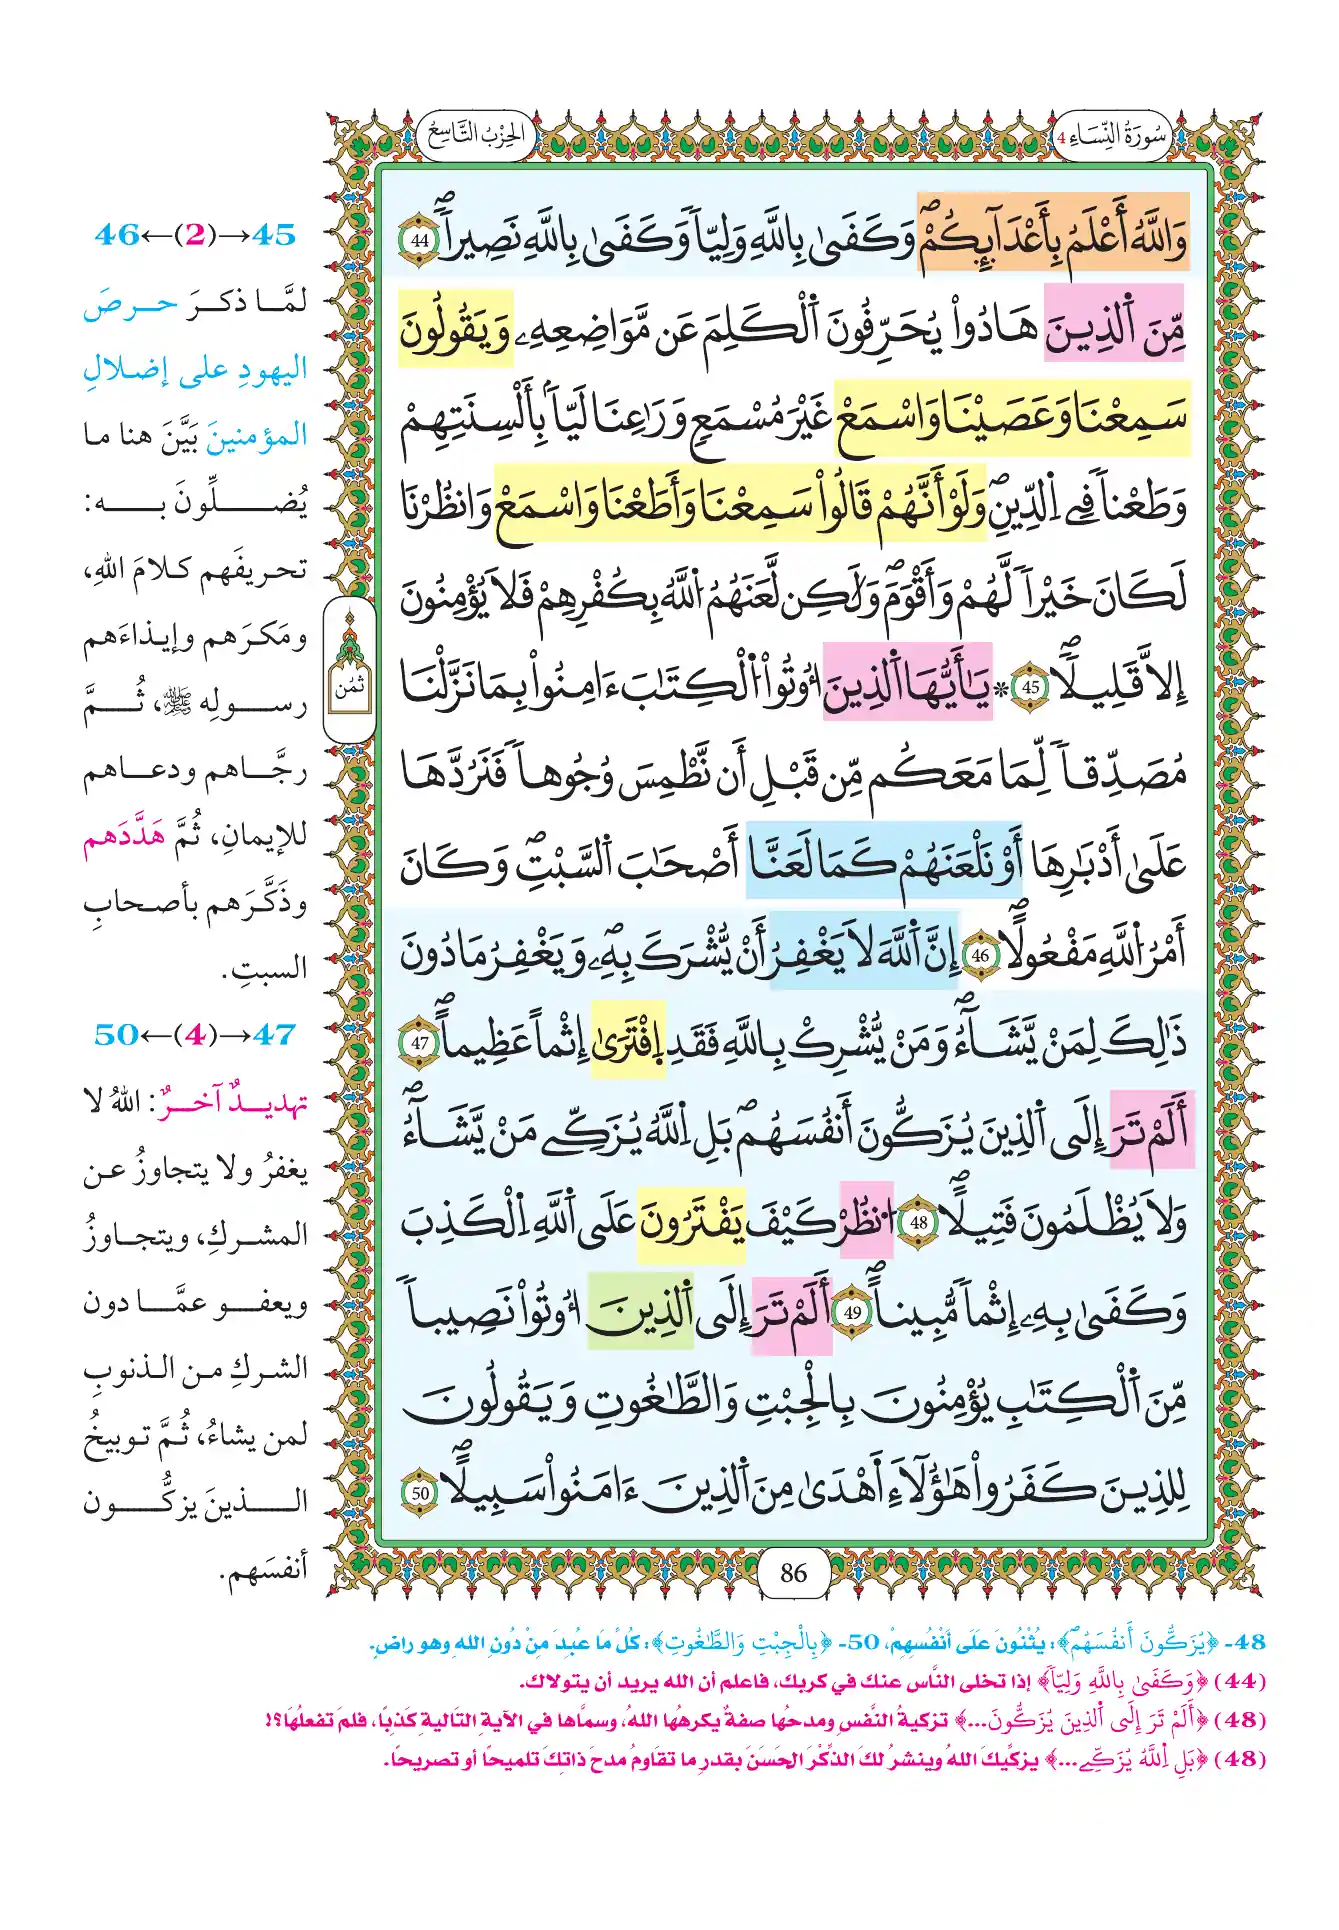 سُورَةُ النِّسَاءِ 4
الحِزْبُ التَّاسِعُ
وَاللَّهُ أَعْلَمُ بِأَعْدَآئِكُمْۖ وَكَفَىٰ بِاللَّهِ وَلِيّاٗ وَكَفَىٰ بِاللَّهِ نَصِيراٗۖ 44
مِّنَ اَ۬لذِينَ هَادُواْ يُحَرِّفُونَ اَ۬لْكَلِمَ عَن مَّوَاضِعِهِۦ وَيَقُولُونَ
سَمِعْنَا وَعَصَيْنَا وَاسْمَعْ غَيْرَ مُسْمَعٖ وَرَٰعِنَا لَيّاَۢ بِأَلْسِنَتِهِمْ
وَطَعْناٗ فِے اِ۬لدِّينِۖ وَلَوْ أَنَّهُمْ قَالُواْ سَمِعْنَا وَأَطَعْنَا وَاسْمَعْ وَانظُرْنَا
لَكَانَ خَيْراٗ لَّهُمْ وَأَقْوَمَۖ وَلَٰكِن لَّعَنَهُمُ اُ۬للَّهُ بِكُفْرِهِمْ فَلَا يُؤْمِنُونَ
إِلَّا قَلِيلاٗۖ 45 * يَٰأَيُّهَا اَ۬لذِينَ أُوتُواْ اُ۬لْكِتَٰبَ ءَامِنُواْ بِمَا نَزَّلْنَا
مُصَدِّقاٗ لِّمَا مَعَكُم مِّن قَبْلِ أَن نَّطْمِسَ وُجُوهاٗ فَنَرُدَّهَا
عَلَىٰ أَدْبَٰرِهَا أَوْ نَلْعَنَهُمْ كَمَا لَعَنَّا أَصْحَٰبَ اَ۬لسَّبْتِۖ وَكَانَ
أَمْرُ اُ۬للَّهِ مَفْعُولاًۖ 46 إِنَّ اَ۬للَّهَ لَا يَغْفِرُ أَنْ يُّشْرَكَ بِهِۦۖ وَيَغْفِرُ مَا دُونَ
ذَٰلِكَ لِمَنْ يَّشَآءُۖ وَمَنْ يُّشْرِكْ بِاللَّهِ فَقَدِ اِ۪فْتَرَىٰ إِثْماً عَظِيماًۖ 47
أَلَمْ تَرَ إِلَى اَ۬لذِينَ يُزَكُّونَ أَنفُسَهُمۖ بَلِ اِ۬للَّهُ يُزَكِّے مَنْ يَّشَآءُۖ
وَلَا يُظْلَمُونَ فَتِيلاًۖ 48 اُ۟نظُرْ كَيْفَ يَفْتَرُونَ عَلَى اَ۬للَّهِ اِ۬لْكَذِبَ
وَكَفَىٰ بِهِۦ إِثْماٗ مُّبِيناًۖ 49 أَلَمْ تَرَ إِلَى اَ۬لذِينَ أُوتُواْ نَصِيباٗ
مِّنَ اَ۬لْكِتَٰبِ يُؤْمِنُونَ بِالْجِبْتِ وَالطَّٰغُوتِ وَيَقُولُونَ
لِلذِينَ كَفَرُواْ هَٰؤُلَآءِ اَ۬هْدَىٰ مِنَ اَ۬لذِينَ ءَامَنُواْ سَبِيلاًۖ 50
ثُمُن
86
45→(2)←46
لمَّا ذكرَ حرصَ
اليهودِ على إضلالِ
المؤمنينَ بَيَّنَ هنا ما
يُضلِّونَ به:
تحريفَهم كلامَ اللهِ،
ومَكرَهم وإيذاءَهم
رسولِه ﷺ، ثُمَّ
رجَّاهم ودعاهم
للإيمانِ، ثُمَّ هَدَّدَهم
وذَكَّرَهم بأصحابِ
السبتِ.
47→(4)←50
تهديدٌ آخرٌ: اللهُ لا
يغفرُ ولا يتجاوزُ عن
المشركِ، ويتجاوزُ
ويعفو عمَّا دون
الشركِ من الذنوبِ
لمن يشاءُ، ثُمَّ توبيخُ
الذينَ يزكُّون
أنفسَهم.
48- ﴿يُزَكُّونَ أَنفُسَهُمۖ﴾: يُثْنُونَ عَلَى أَنْفُسِهِمْ، 50- ﴿بِالْجِبْتِ وَالطَّٰغُوتِ﴾: كُلُّ مَا عُبِدَ مِنْ دُونِ اللهِ وهو راضٍ.
(44) ﴿وَكَفَىٰ بِاللَّهِ وَلِيّاٗ﴾ إذا تخلى النَّاس عنك في كربك، فاعلم أن الله يريد أن يتولاك.
(48) ﴿أَلَمْ تَرَ إِلَى اَ۬لذِينَ يُزَكُّونَ...﴾ تزكيةُ النَّفسِ ومدحُها صفةٌ يكرهُها اللهُ، وسمَّاها في الآيةِ التَاليةِ كَذِبًا، فلمَ تفعلُهَا؟!
(48) ﴿بَلِ اِ۬للَّهُ يُزَكِّے...﴾ يزكِّيكَ اللهُ وينشرُ لكَ الذِّكْرَ الحَسَنَ بقدرِ ما تقاومُ مدحَ ذاتِكَ تلميحًا أو تصريحًا.